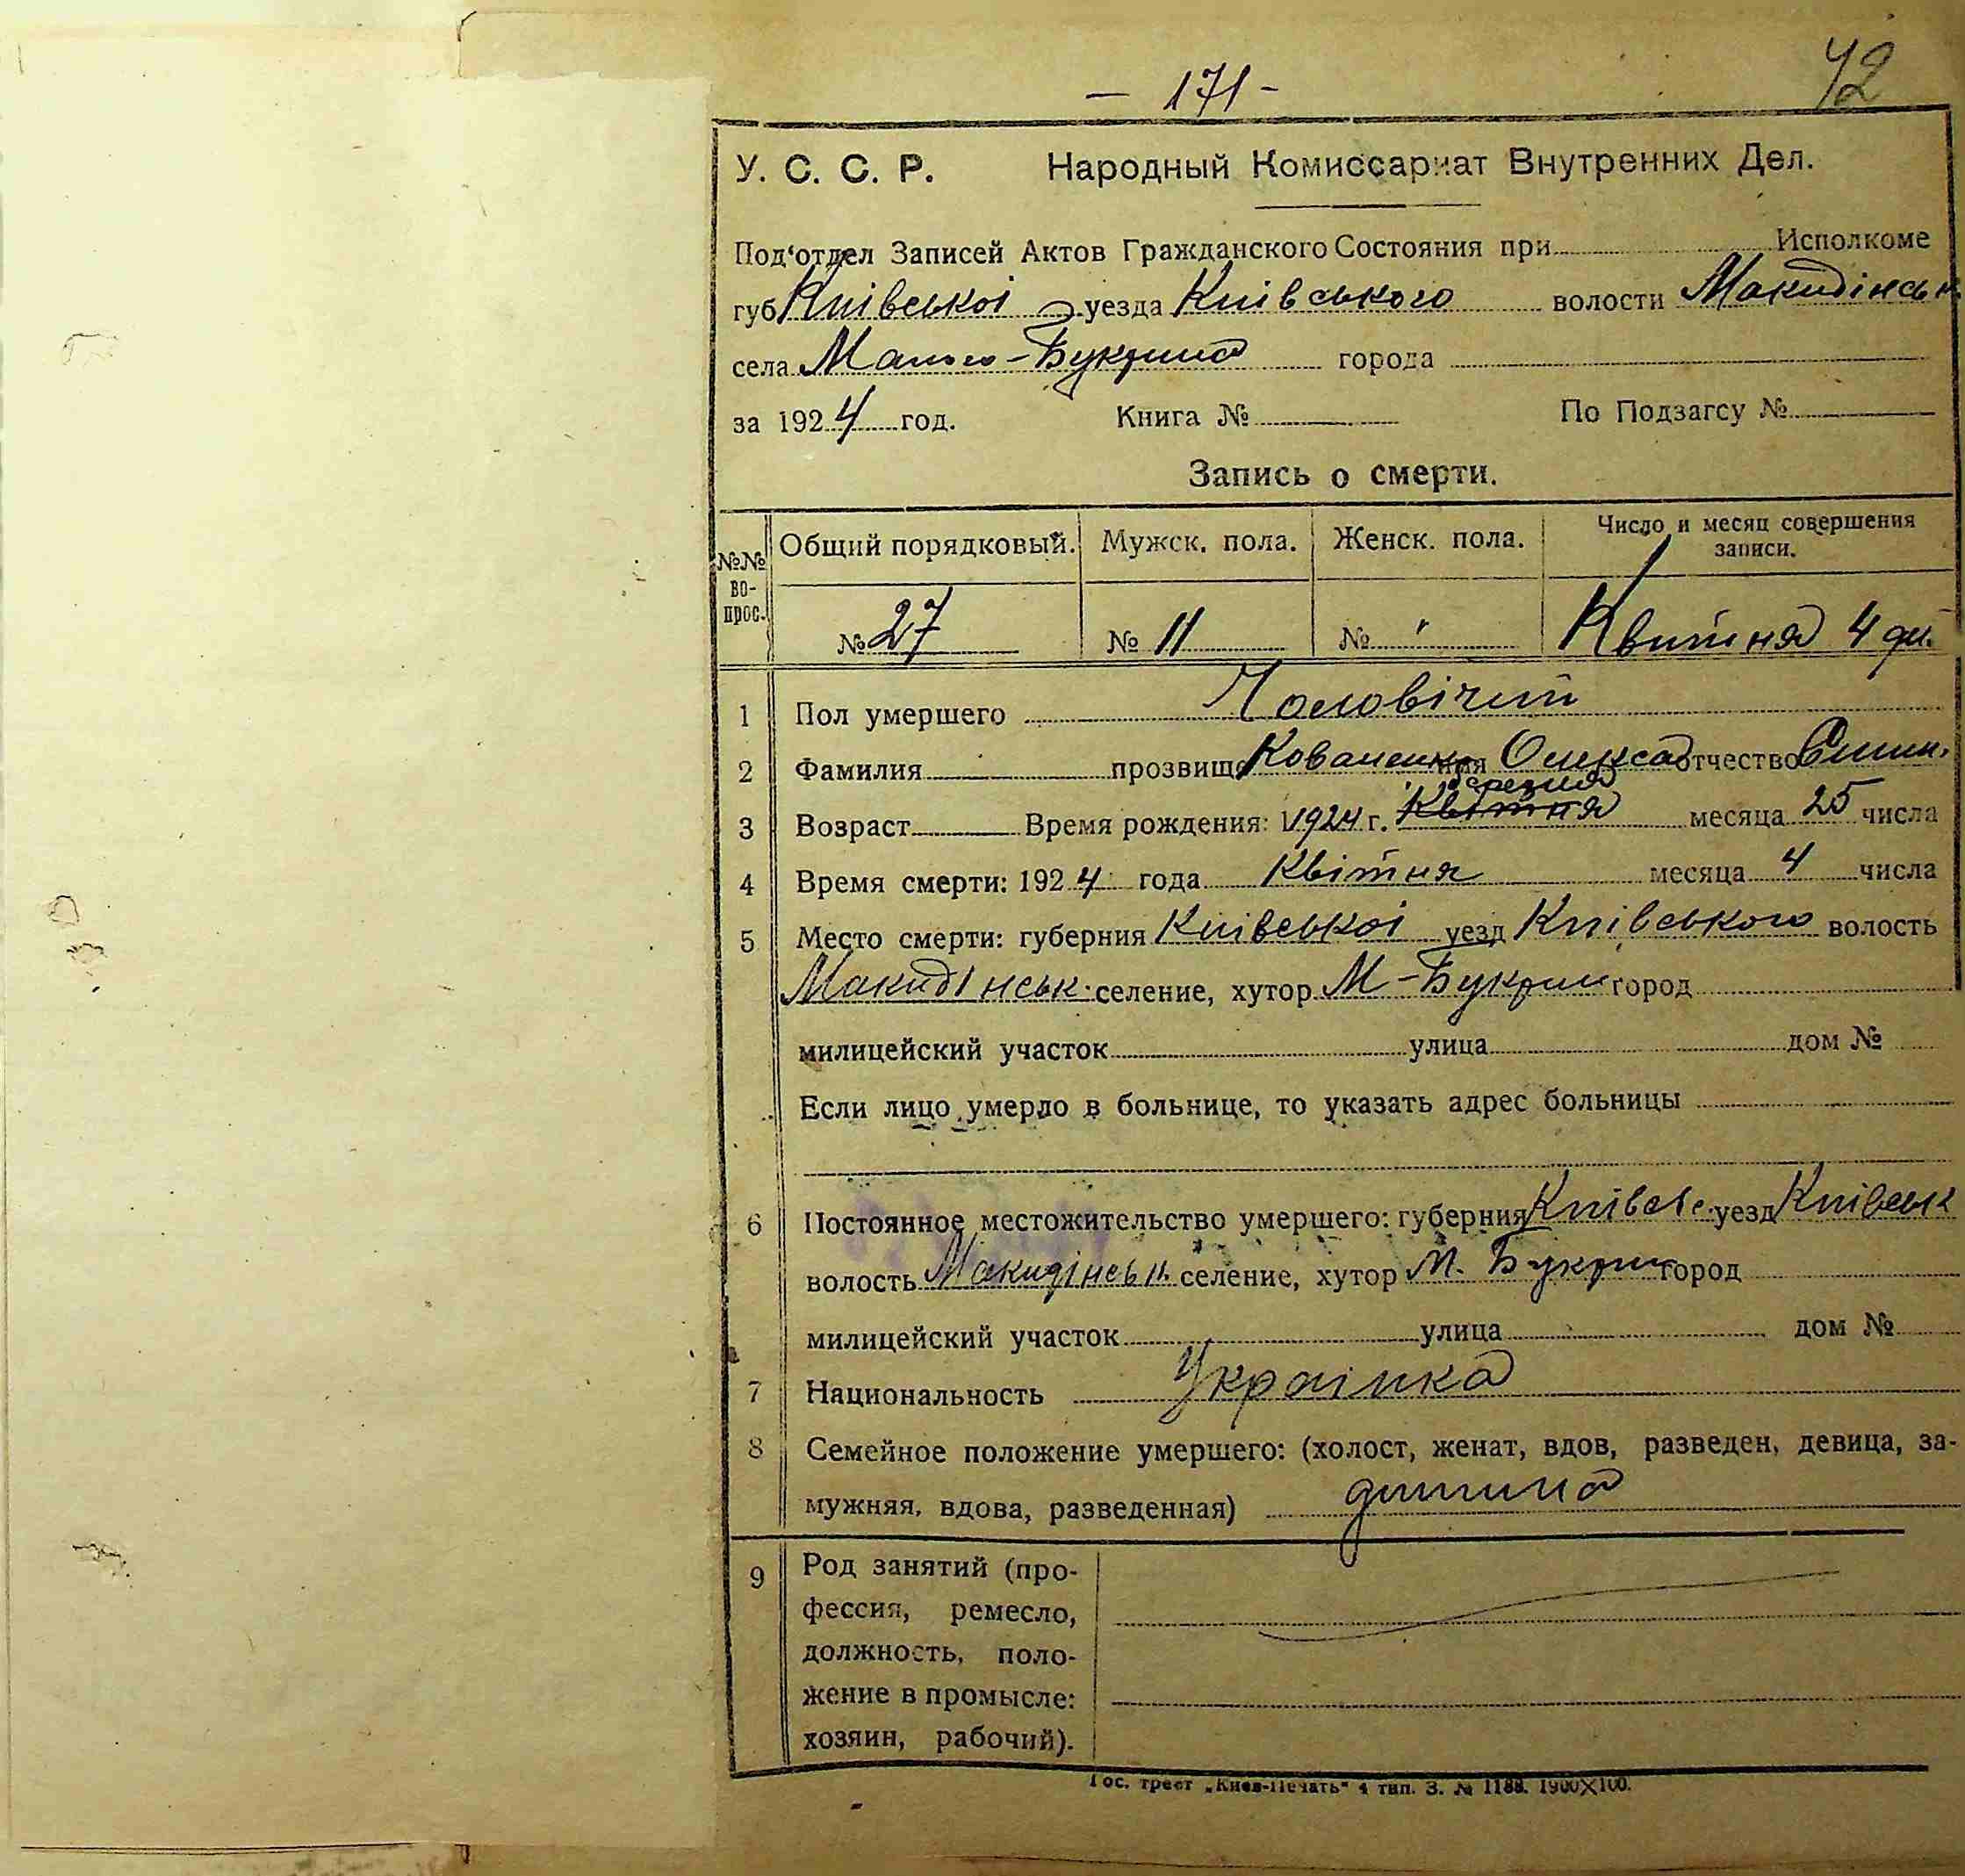 - 171 -
42
У. С. С. Р. Народный Комиссариат Внутренних Дел.
Под‘отдел Записей Актов Гражданского Состояния при Исполкоме
губ Київської уезда Київського волости Македінськ
села Мало-Букрина города
за 1924 год. Книга № По Подзагсу №
Запись о смерти.
№№ во-прос. Общий порядковый. Мужск. пола. Женск. пола. Число и месяц совершения записи.
№ 27 № 11 № " Квітня 4 дн.
1 Пол умершего Чоловічий
2 Фамилия прозвище Коваленко имя Олекса отчество
березня
3 Возраст Время рождения: 1924 г. Квітня месяца 25 числа
4 Время смерти: 1924 года Квітня месяца 4 числа
5 Место смерти: губерния Київської уезд Київського волость
Македінськ. селение, хутор М-Букрин город
милицейский участок улица дом №
Если лицо умерло в больнице, то указать адрес больницы
6 Постоянное местожительство умершего: губерния Київськ. уезд Київськ
волость Македінськ. селение, хутор М. Букрин город
милицейский участок улица дом №
7 Национальность Українка
8 Семейное положение умершего: (холост, женат, вдов, разведен, девица, за-
мужняя, вдова, разведенная) дитина
9 Род занятий (про-
фессия, ремесло,
должность, поло-
жение в промысле:
хозяин, рабочий).
Гос. трест „Киев-Печать“ 4 тип. З. № 1188. 1900Х100.